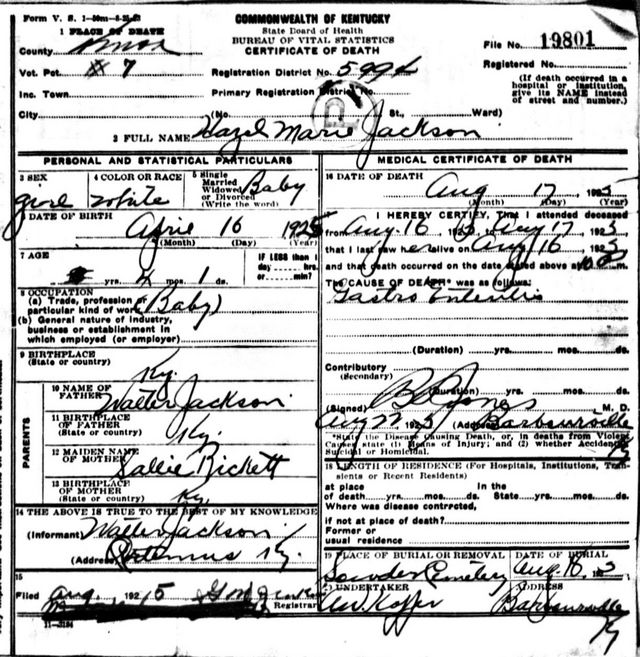 Form V. S. 1-50m-8-21-23
COMMONWEALTH OF KENTUCKY
State Board of Health
BUREAU OF VITAL STATISTICS
CERTIFICATE OF DEATH
1 PLACE OF DEATH
County Knox
File No. 19801
Vot. Pct. #7
Registration District No. 5994
Registered No.
Inc. Town
Primary Registration District No.
(If death occurred in a hospital or institution, give its NAME instead of street and number.)
City (No. St., Ward)
2 FULL NAME Hazel Marie Jackson
PERSONAL AND STATISTICAL PARTICULARS
3 SEX girl
4 COLOR OR RACE white
5 Single Married Widowed or Divorced (Write the word) Baby
DATE OF BIRTH April 16 1925
(Month) (Day) (Year)
7 AGE yrs. 4 mos. 1 ds.
IF LESS than 1 day hrs. or min?
8 OCCUPATION
(a) Trade, profession or particular kind of work (Baby)
(b) General nature of industry, business or establishment in which employed (or employer)
9 BIRTHPLACE
(State or country) Ky.
PARENTS
10 NAME OF FATHER Walter Jackson
11 BIRTHPLACE OF FATHER
(State or country) Ky.
12 MAIDEN NAME OF MOTHER Sallie Bickett
13 BIRTHPLACE OF MOTHER
(State or country) Ky.
14 THE ABOVE IS TRUE TO THE BEST OF MY KNOWLEDGE
(Informant) Walter Jackson
(Address) Artemus Ky.
15
Filed Aug. 192
Registrar
11-3184
MEDICAL CERTIFICATE OF DEATH
16 DATE OF DEATH
Aug 17 1925
(Month) (Day) (Year)
I HEREBY CERTIFY, That I attended deceased
from Aug 16 Aug 17 192
that I last saw her alive on Aug 16 192
and that death occurred on the date stated above at
The CAUSE OF DEATH* was as follows:
Gastro Enteritis
(Duration) yrs. mos. ds.
Contributory
(Secondary)
(Duration) yrs. mos. ds.
(Signed) Jones M. D.
Aug 192 (Address) Barbourville Ky
*State the Disease Causing Death, or, in deaths from Violent Causes, state (1) Means of Injury; and (2) whether Accidental, Suicidal or Homicidal.
18 LENGTH OF RESIDENCE (For Hospitals, Institutions, Transients or Recent Residents)
at place of death yrs. mos. ds. In the State yrs. mos. ds.
Where was disease contracted,
if not at place of death?
Former or
usual residence
19 PLACE OF BURIAL OR REMOVAL Cemetery
DATE OF BURIAL Aug. 192
UNDERTAKER
ADDRESS Barbourville
Ky